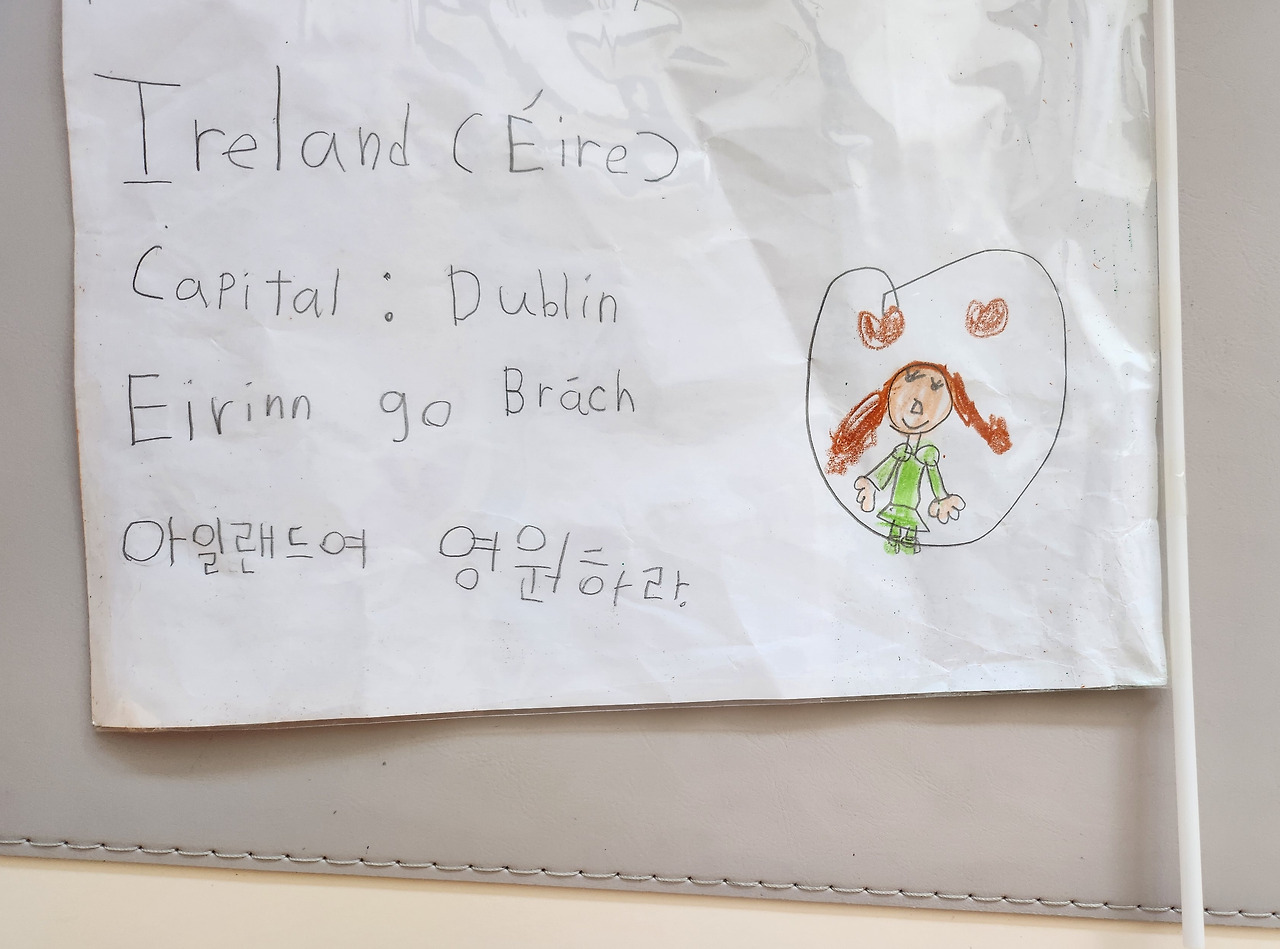 Ireland (Éire)
Capital : Dublin
Eirinn go Brách
아일랜드여 영원하라.